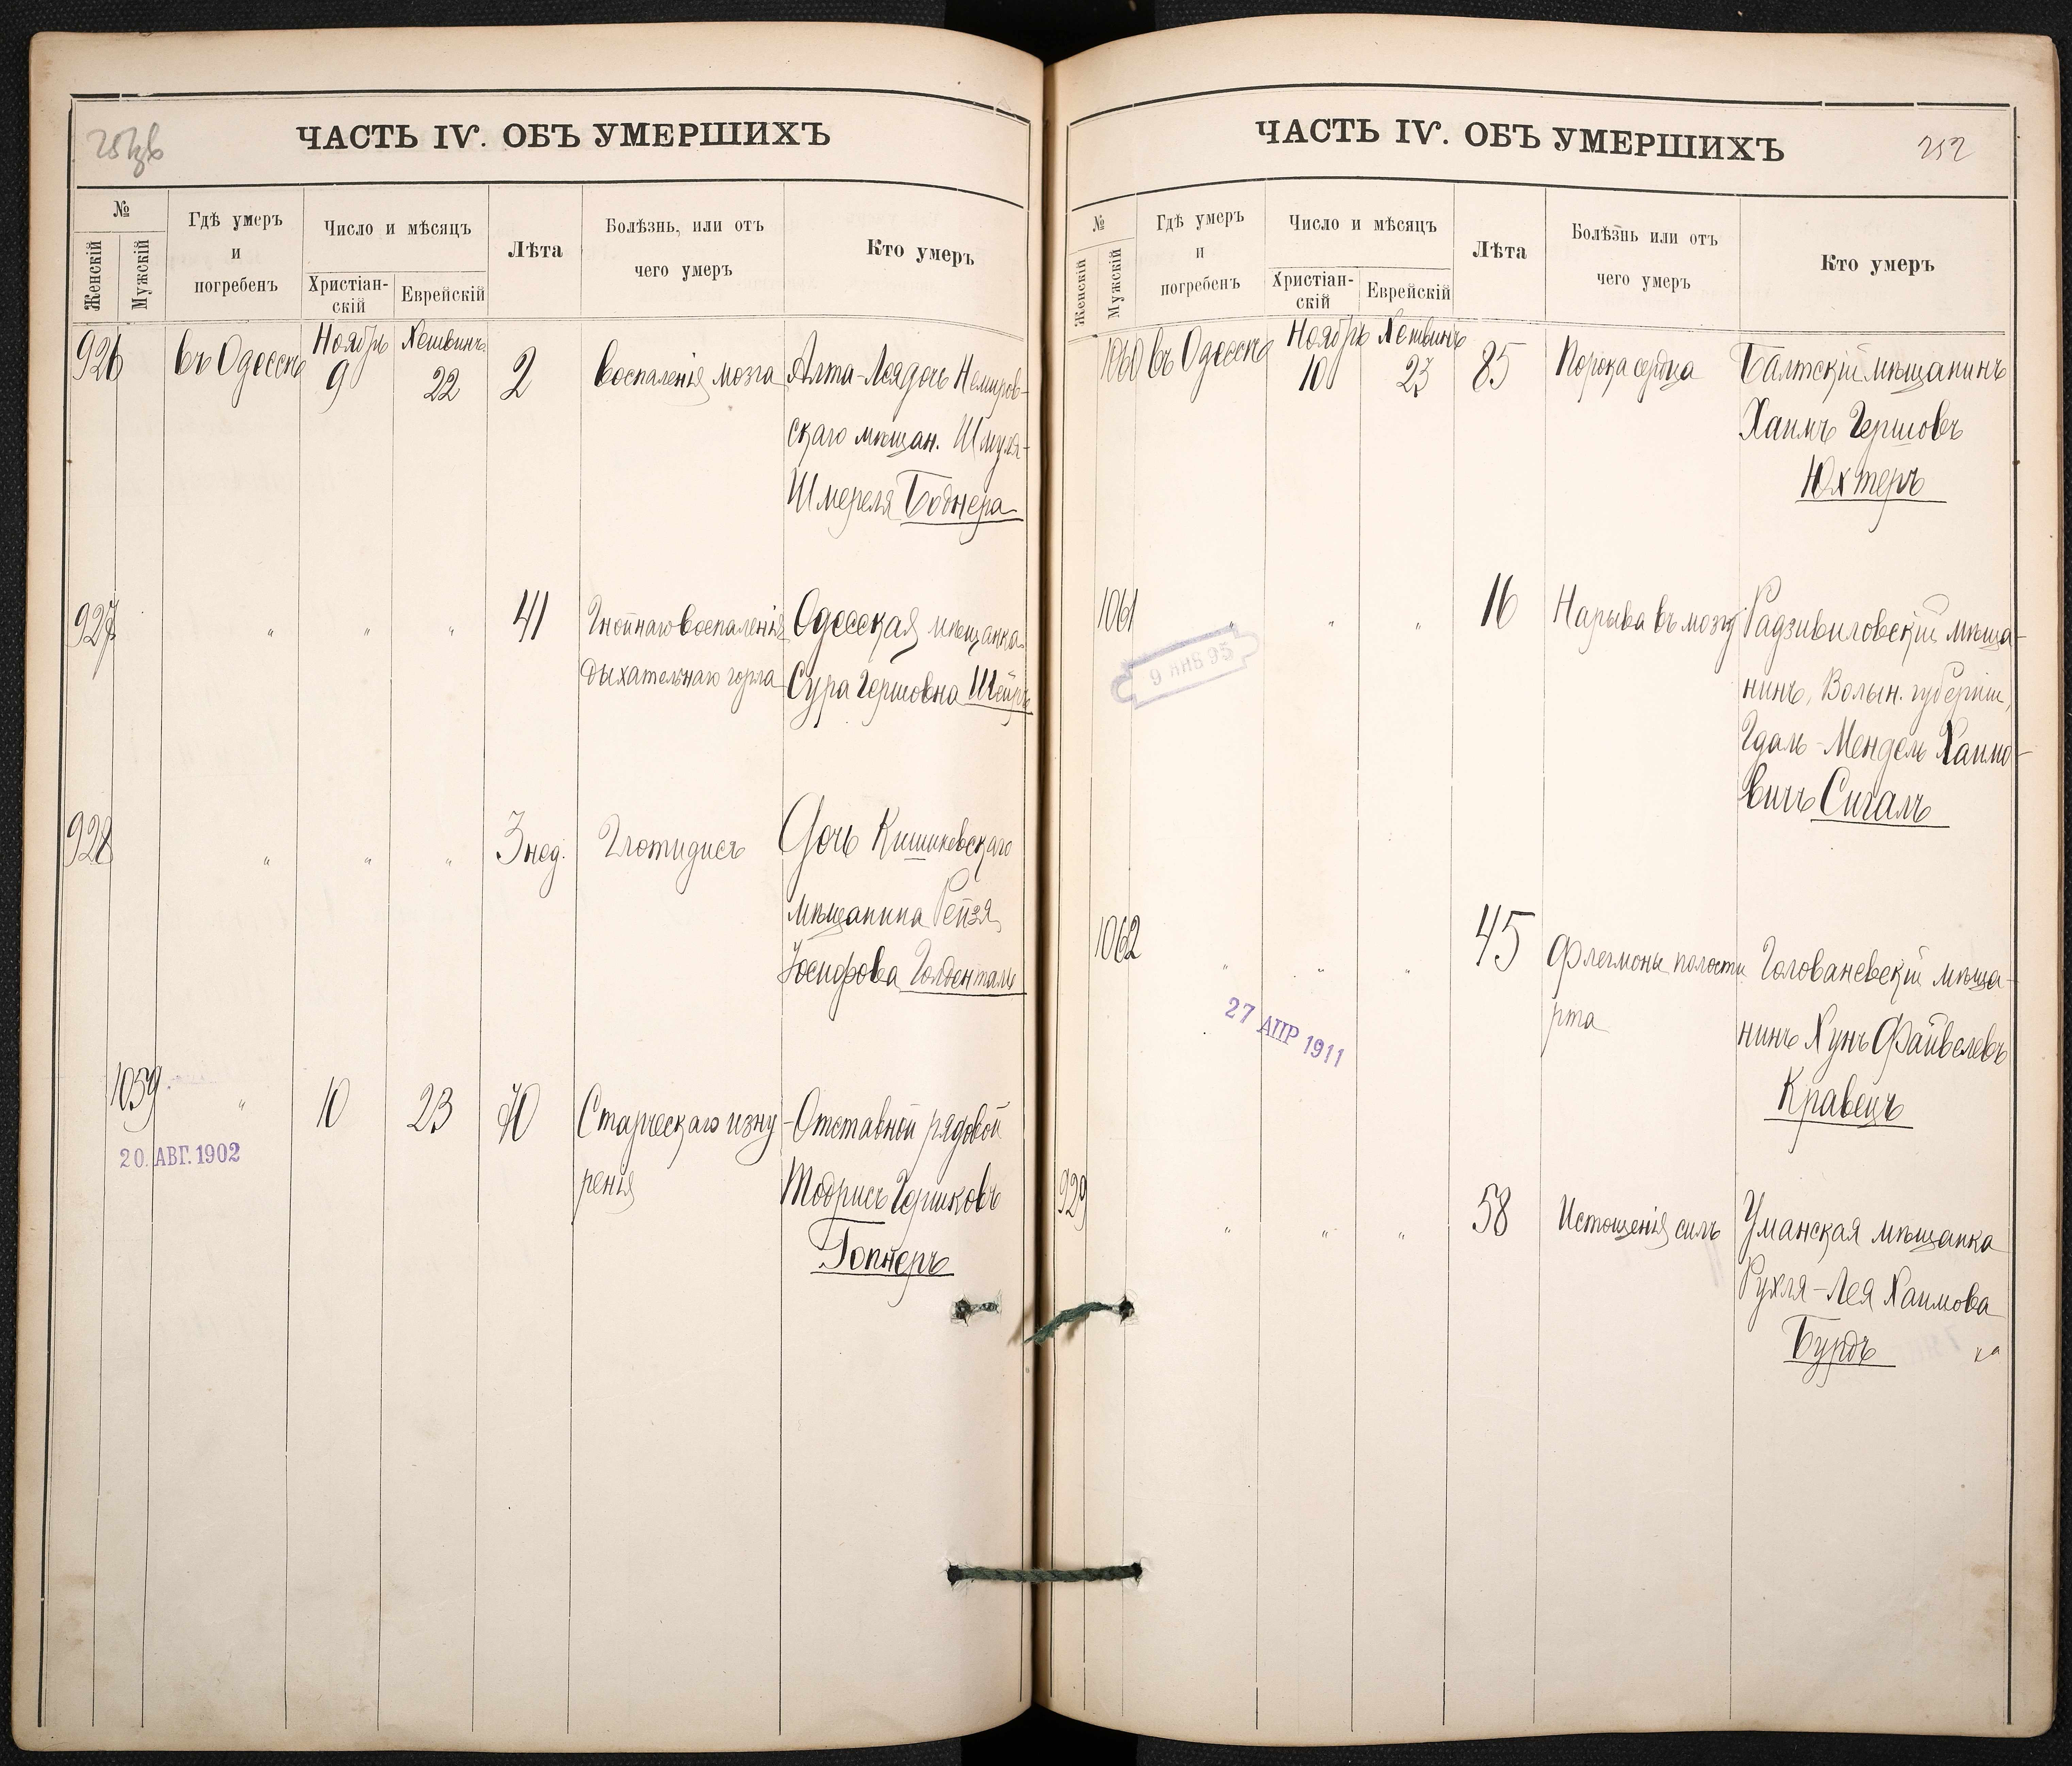 ЧАСТЬ IV. ОБЪ УМЕРШИХЪ
№
Женскій
Мужскій
Гдѣ умеръ
и
погребенъ
Число и мѣсяцъ
Христіан-
скій
Еврейскій
Лѣта
Болѣзнь, или отъ
чего умеръ
Кто умеръ
926
въ Одессѣ
Ноябрь
9
Хешвинъ
22
2
воспаленія мозга
Алта-Лея дочь Немиров-
скаго мѣщан. Шмуля-
Шмереля Боднера
927
"
"
"
41
Гнойнаго воспаленія
дыхательнаго горла
Одесская мѣщанка
Сура Гершовна
928
"
"
"
3 нед.
Глотидисъ
Дочь Кишиневскаго
мѣщанина Рейзя
Іосифова Голденталь
1059
"
10
23
70
Старческаго изну-
ренія
Отставной рядовой
Тодрисъ Гершковъ
Гопнеръ
20. АВГ. 1902
ЧАСТЬ IV. ОБЪ УМЕРШИХЪ
252
№
Женскій
Мужскій
Гдѣ умеръ
и
погребенъ
Число и мѣсяцъ
Христіан-
скій
Еврейскій
Лѣта
Болѣзнь или отъ
чего умеръ
Кто умеръ
1060
въ Одессѣ
Ноябрь
10
Хешвинъ
23
85
Порока сердца
Балтскій мѣщанинъ
Хаимъ Гершовъ
Юхтеръ
1061
"
"
"
16
Нарыва въ мозгу
Радзивиловскій мѣща-
нинъ, Волын. губерніи,
Гдаль-Мендель Хаимо-
вичъ Сигалъ
9 ЯНВ 95
1062
"
"
"
45
Флегмоны полости
рта
Голованевскій мѣща-
нинъ Хунъ Файвелевъ
Кравецъ
27 АПР 1911
929
"
"
"
58
Истощенія силъ
Уманская мѣщанка
Рухля-Лея Хаимова
Бурдъ